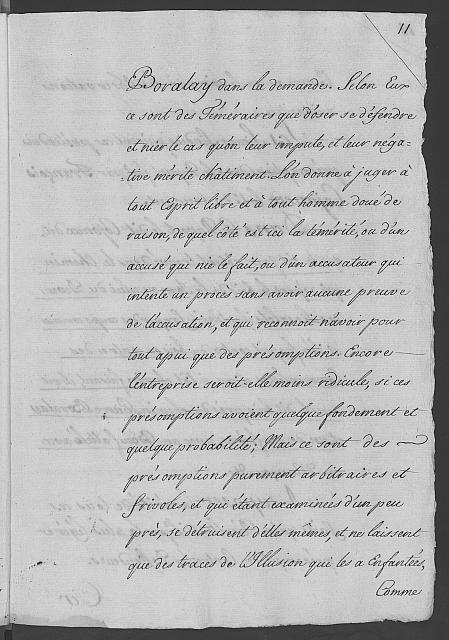 11
Boralay dans la demande. Selon Eux
ce sont des Téméraires que d'oser se défendre
et nier le cas qu'on leur impute, et leur néga=
=tive mérite châtiment. L'on donne à juger à
tout Esprit libre et à tout homme doué de
raison, de quel côté est ici la témérité, ou d'un
accusé qui nie le fait, ou d'un accusateur qui
intente un procès sans avoir aucune preuve
de l'accusation, et qui reconnoit n'avoir pour
tout apui que des présomptions. Encore
l'entreprise seroit-elle moins ridicule, si ces
présomptions avoient quelque fondement et
quelque probabilité; Mais ce sont des
présomptions purement arbitraires et
frivoles, et qui étant examinées d'un peu
près, se détruisent d'elles mêmes, et ne laissent
que des traces de L'Illusion qui les a Enfantées,
Comme